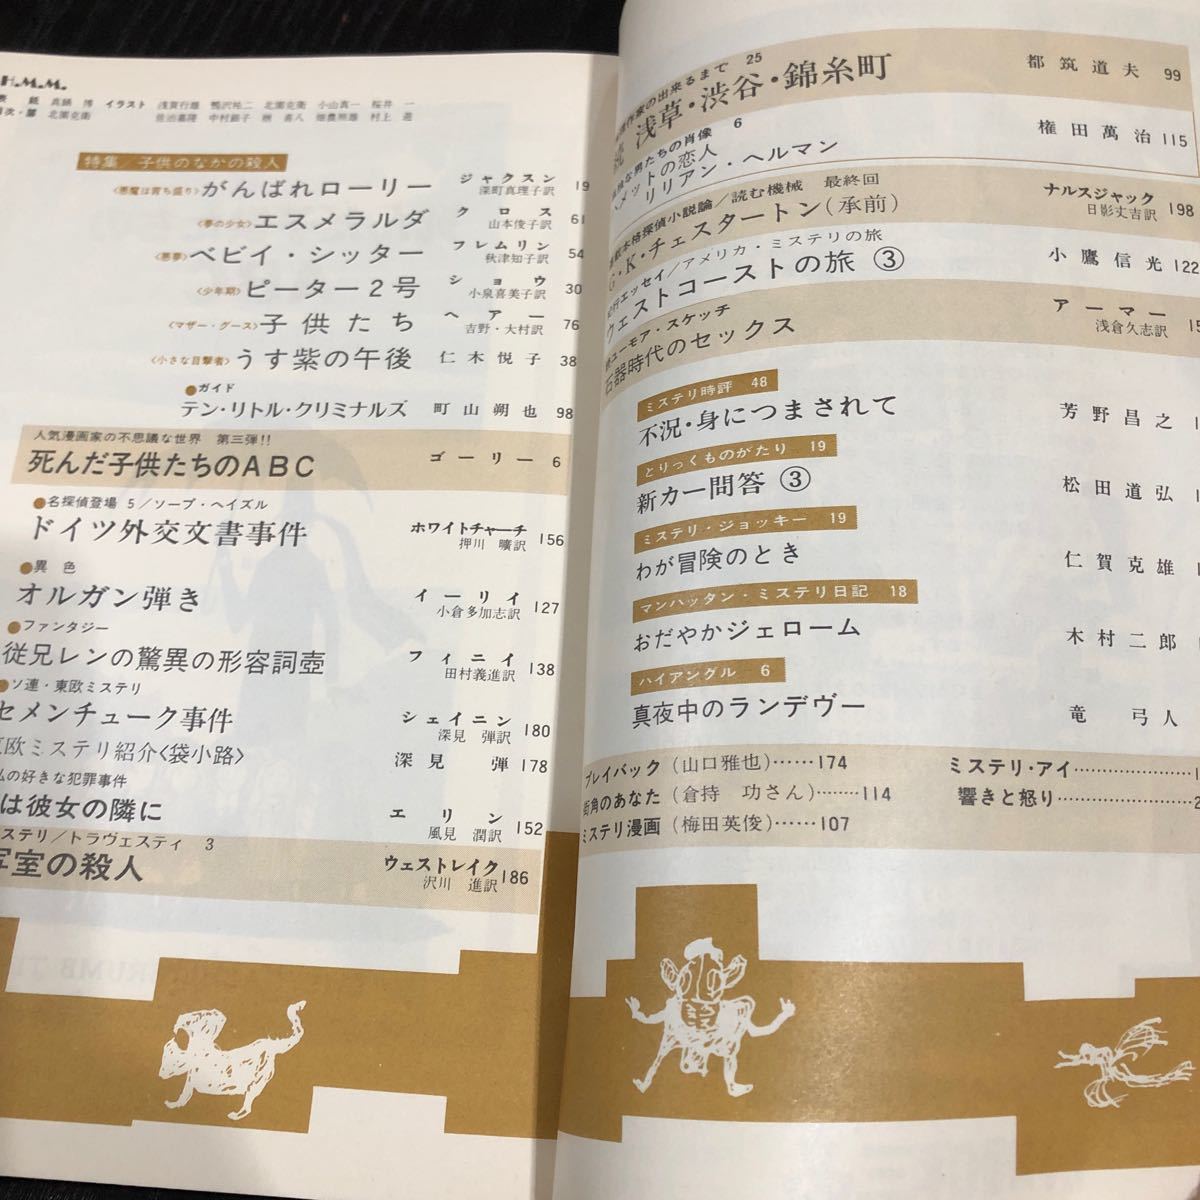 H.M.M.
紙 真鍋 博 イラスト 浅賀行雄 鴨沢祐二 北園克衛 小山真一 桜井 一
目次・扉 北園克衛 佐治嘉隆 中村銀子 畑農照雄 村上 遊
特集/子供のなかの殺人
〈悪魔は育ち盛り〉がんばれローリー ジャクスン 深町真理子訳 19
〈夢の少女〉エスメラルダ クロス 山本俊子訳 61
〈悪夢〉ベビイ・シッター フレムリン 秋津知子訳 54
〈少年期〉ピーター2号 ショウ 小泉喜美子訳 30
〈マザー・グース〉子供たち ヘアー 吉野・大村訳 76
〈小さな目撃者〉うす紫の午後 仁木悦子 38
●ガイド
テン・リトル・クリミナルズ 町山朔也 98
人気漫画家の不思議な世界 第三弾!!
死んだ子供たちのABC ゴーリー 6
●名探偵登場 5/ソープ・ヘイズル
ドイツ外交文書事件 ホワイトチャーチ 押川 曠訳 156
●異色
オルガン弾き イーリイ 小倉多加志訳 127
●ファンタジー
従兄レンの驚異の形容詞壺 フィニイ 田村義進訳 138
●ソ連・東欧ミステリ
セメンチューク事件 シェイニン 深見 弾訳 180
欧ミステリ紹介〈袋小路〉 深見 弾 178
私の好きな犯罪事件
は彼女の隣に エリン 風見 潤訳 152
ステリ/トラヴェスティ 3
室の殺人 ウェストレイク 沢川 進訳 186
作家の出来るまで 25
浅草・渋谷・錦糸町 都筑道夫 99
な男たちの肖像 6
メットの恋人
リリアン・ヘルマン 権田萬治 115
本格探偵小説論/読む機械 最終回
G・K・チェスタートン(承前) ナルスジャック 日影丈吉訳 198
紀行エッセイ/アメリカ・ミステリの旅
ウェストコーストの旅 ③ 小鷹信光 122
ユーモア・スケッチ
石器時代のセックス アーマー 浅倉久志訳
ミステリ時評 48
不況・身につまされて 芳野昌之
とりっくものがたり 19
新カー問答 ③ 松田道弘
ミステリ・ジョッキー 19
わが冒険のとき 仁賀克雄
マンハッタン・ミステリ日記 18
おだやかジェローム 木村二郎
ハイアングル 6
真夜中のランデヴー 竜 弓人
プレイバック(山口雅也)……174
街角のあなた(倉持 功さん)……114
ミステリ漫画(梅田英俊)……107
ミステリ・アイ
響きと怒り